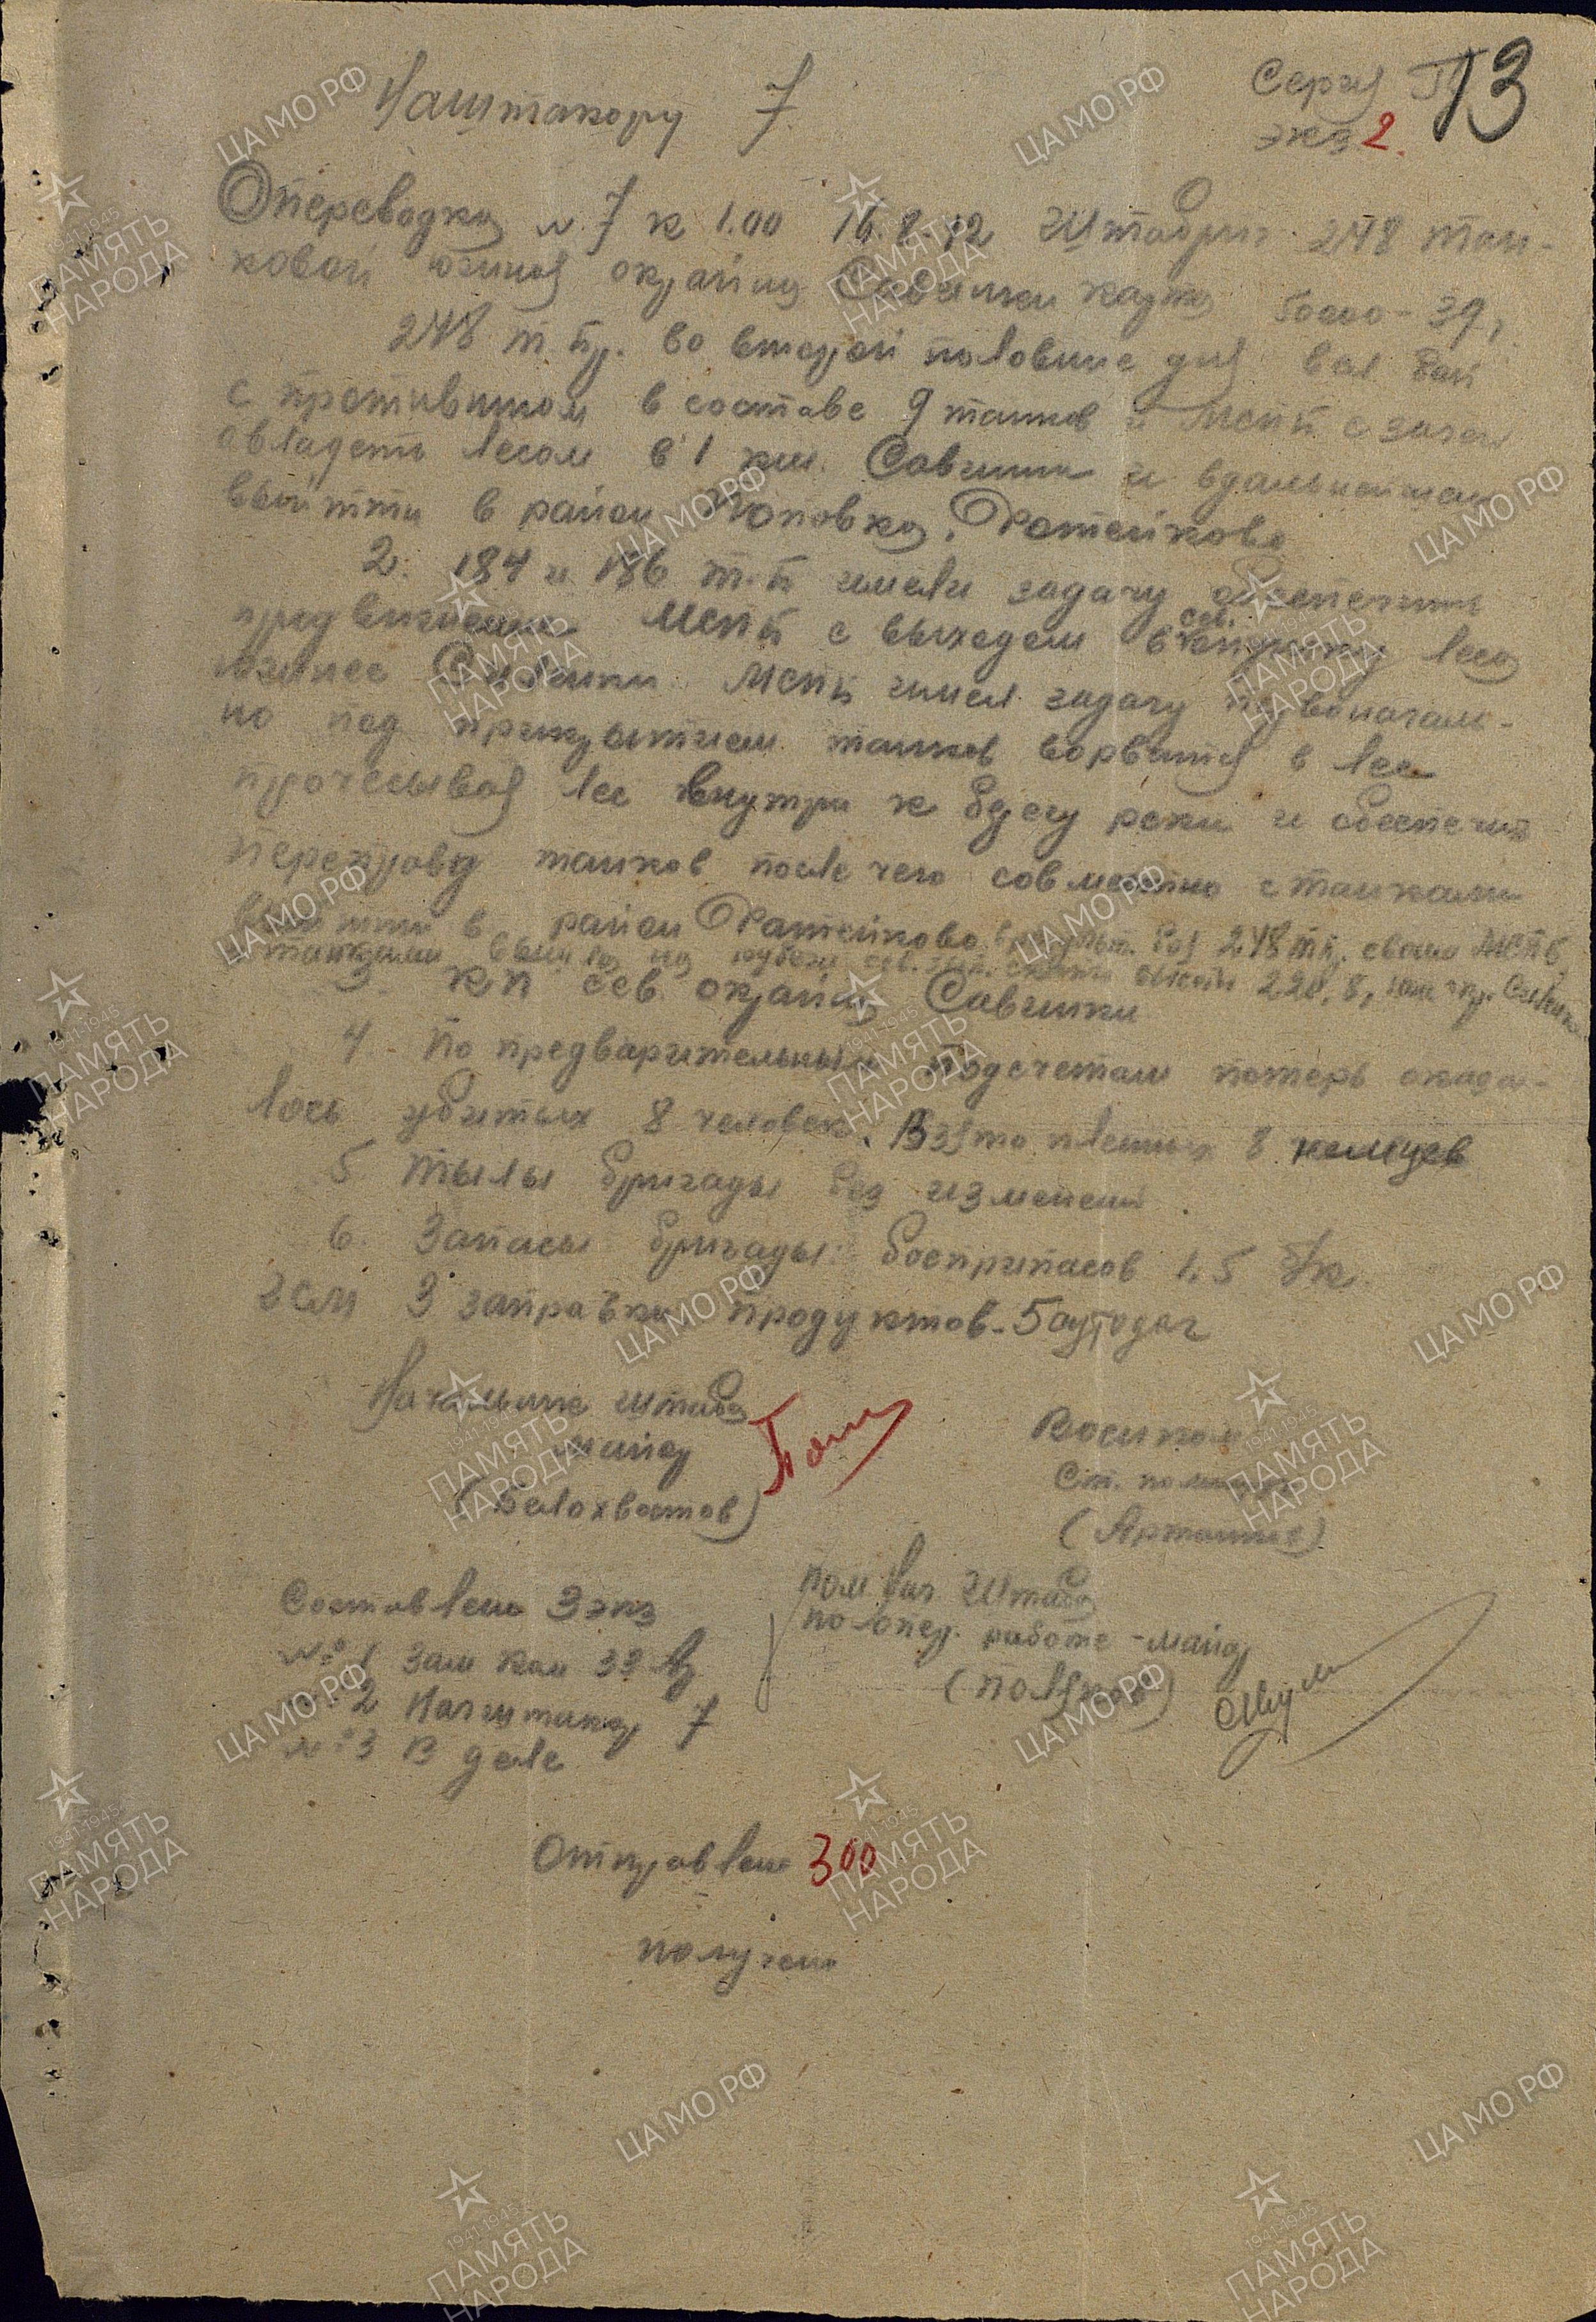 Наштакору 7.
Серия
13
экз 2.
Оперсводка № 7 к 1.00 16.8.42 Штабриг 248 тан-
ковой южная окраина Савинки карта 50000-39,
248 т.бр. во второй половине дня вел бой
с противником в составе 9 танков и МСПБ с задач
овладеть лесом в 1 км. Савинки и в дальнейшем
выйтти в район Поповка, Фатейково
2. 184 и 186 т.б имели задачу обеспечить
продвижение МСПБ с выходом в сев. опушку леса
южнее МСПБ имел задачу первоначаль-
но под прикрытием танков ворватся в лес
прочесывая лес внутри к берегу реки и обеспечит
переправу танков после чего совместно с танками
выйтти в район Фатейково в результ. боя 248 тбр. своим МСПБ,
с танками вышла на рубеж сев. зап. скаты высоты 220,8,
3. КП сев. окраина Савинки
4. По предварительным подсчетам потерь оказа-
лось убитых 8 человек. Взято пленных 8 немцев
5 Тылы бригады без изменений.
6. Запасы бригады: боеприпасов 1,5 б/к.
гсм 3 заправки продуктов - 5 сутодач
Начальник штаба
майор
(Белохвостов)
Военком
Ст. политрук
Составлено 3 экз
№ 1 Зам ком 33 А
№ 2 Начштакор 7
№ 3 В деле
Пом Нач Штаба
по опер. работе - майор
(Поляков)
Отправлено 300
получено
ЦА МО РФ
1941-1945
ПАМЯТЬ
НАРОДА